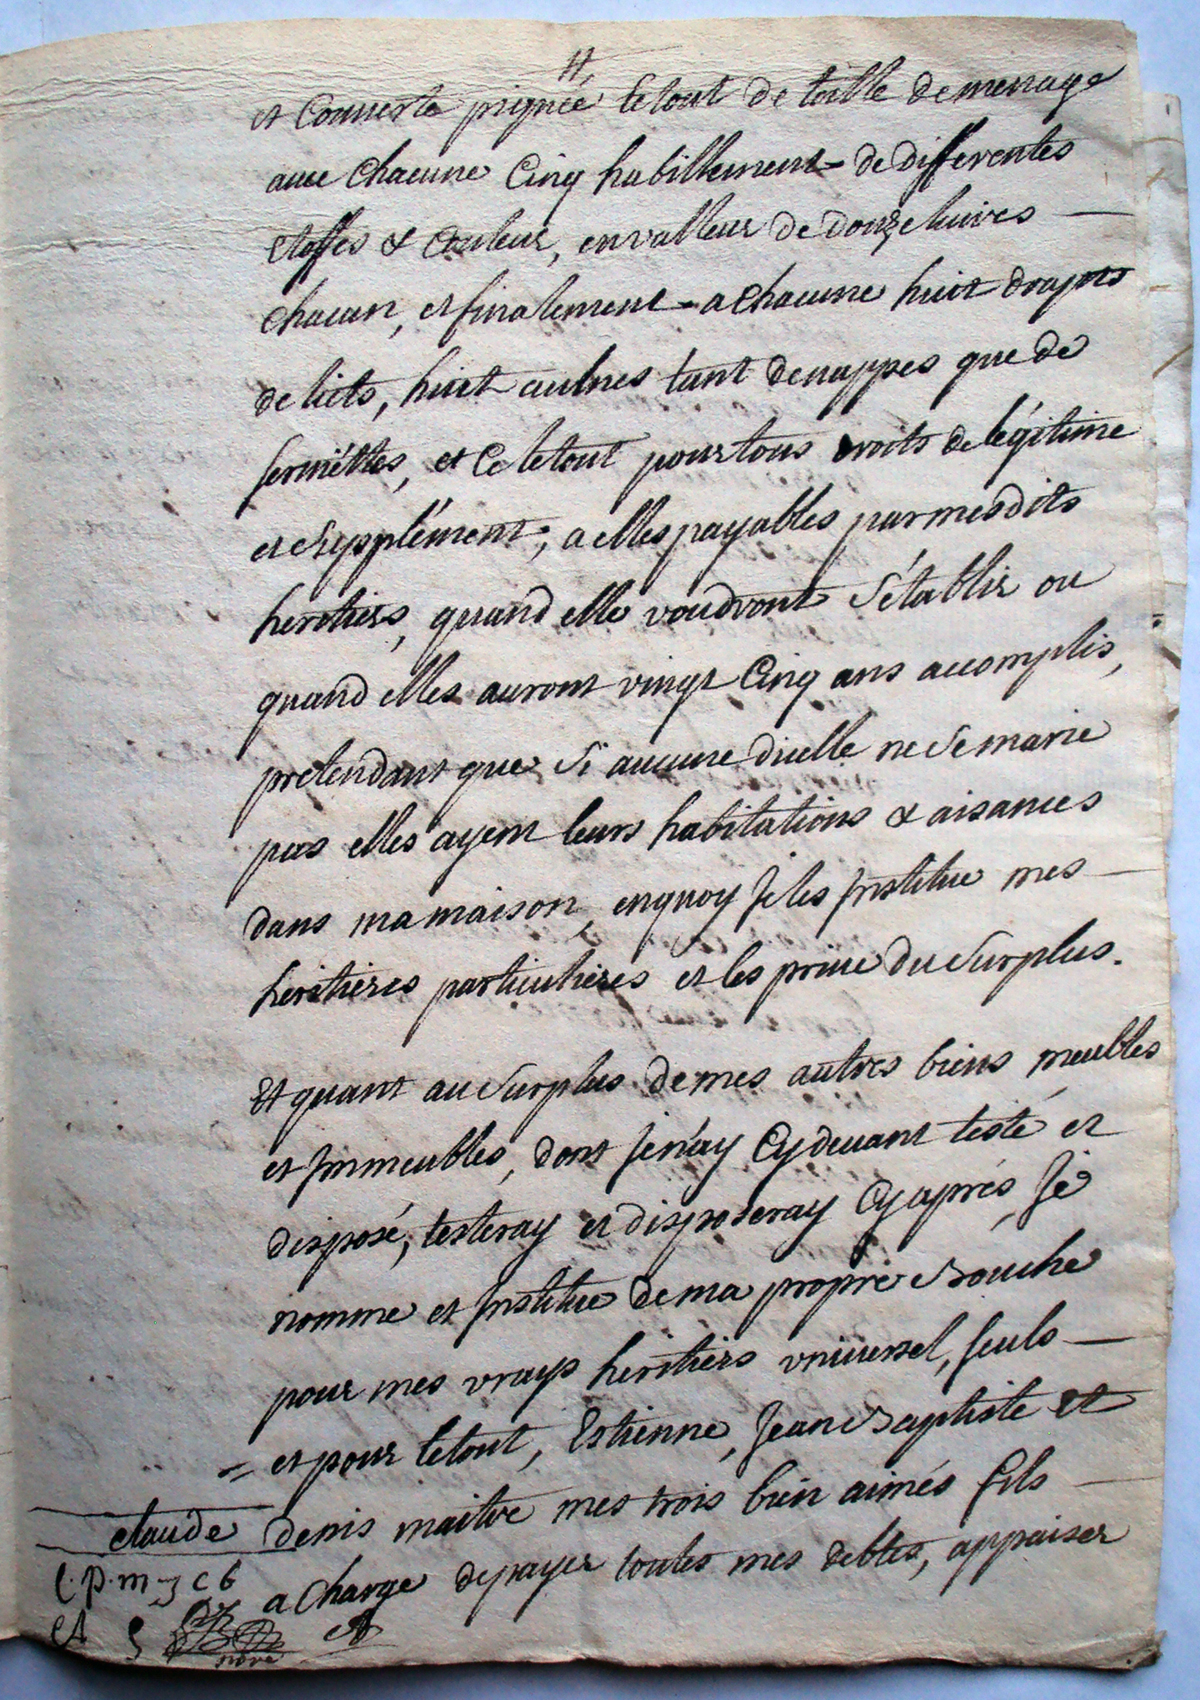 et couverte pignée le tout de toille de menage
avec chacune Cinq habillement de differentes
etoffes & couleur, en valleur de douze livres
chacun, et finalement a chacune huit drapts
de licts, huit aulnes tant de nappes que de
serviéttes, et Ce le tout pour tous droits de légitime
et supplément, a elles payables par mesdits
heritiers, quand elle voudront s'établir ou
quand elles auront vingt Cinq ans accomplis,
pretendant que si aucune dicelle ne se marie
pas elles ayent leurs habitations & aisances
dans ma maison, en quoy Je les Institue mes
heritieres particulieres et les prive du surplus.
Et quant au surplus de mes autres biens meubles
et Immeubles, dont Je n'ay Cy devant testé et
disposé, testeray et disposeray Cy aprés, Je
nomme et Institue de ma propre bouche
pour mes vrays heritiers universel, seuls
= et pour le tout, Estienne, Jean Baptiste et
claude denis maitre mes trois bien aimés fils
a charge de payer toutes mes debtes, appaiser